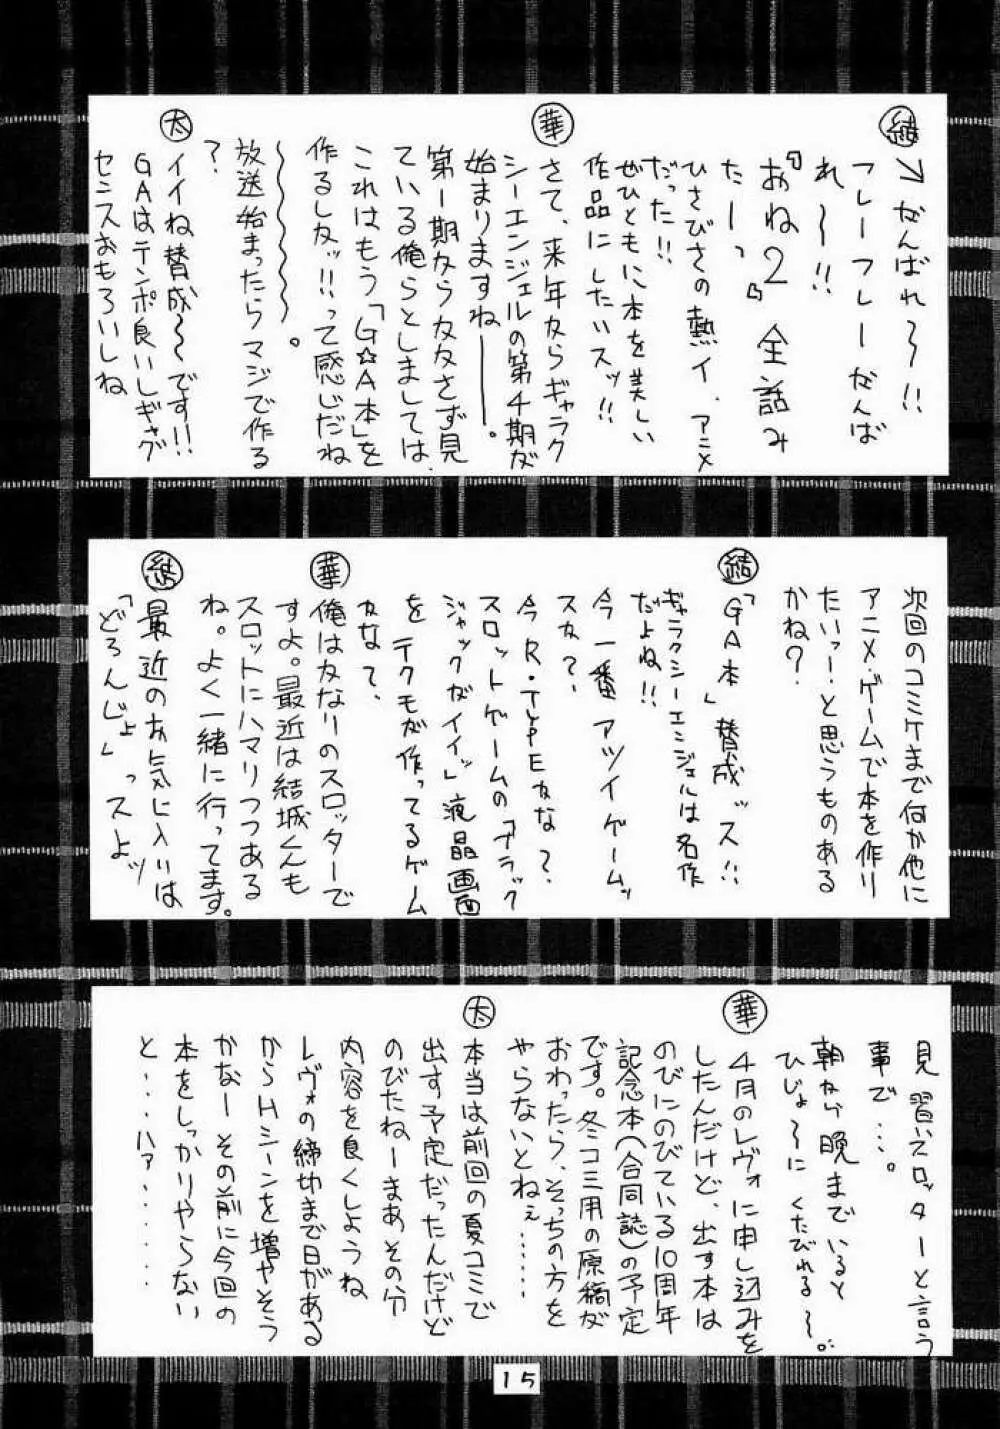 結→がんばれ〜!!
フレーフレーがんば
れ〜!!
『おね2』全話み
たーっ
ひさびさの熱イ、アニメ
だった!!
ぜひともに本を美しい
作品にしたいスッ!!
華 さて、来年からギャラク
シーエンジェルの第4期が
始まりますね───。
第一期からかかさず見
ている俺らとしましては、
これはもう「G☆A本」を
作るしかッ!!って感じだね
〜〜〜〜〜。
放送始まったらマジで作る
?
太 イイね賛成〜〜です!!
GAはテンポ良いしギャグ
センスおもろいしね
次回のコミケまで何か他に
アニメ・ゲームで本を作り
たいっ!と思うものある
かね?
結「GA本」賛成ッス!!
ギャラクシーエンジェルは名作
だよね!!
今一番アツイゲームッ
スか?、
今R・TYPEかな?、
スロットゲームの「ブラック
ジャックがイイッ」液晶画面
を テクモが作ってるゲーム
かな て、
華 俺はかなりのスロッターで
すよ。最近は結城くんも
スロットにハマりつつある
ね。よく一緒に行ってます。
結 最近のお気に入りは
「どろんじょ」っスよッ
見習いスロッターと言う
事で…。
朝から晩までいると
ひじょ〜に くたびれる〜。
華 4月のレヴォに申し込みを
したんだけど、出す本は
のびにのびている10周年
記念本(合同誌)の予定
です。冬コミ用の原稿が
おわったら、そっちの方を
やらないとねぇ……
太 本当は前回の夏コミで
出す予定だったんだけど
のびたねーまあその分
内容を良くしようね
レヴォの締切まで日がある
からHシーンを増やそう
かなー その前に今回の
本をしっかりやらない
と‥‥ハァ‥‥‥‥
15